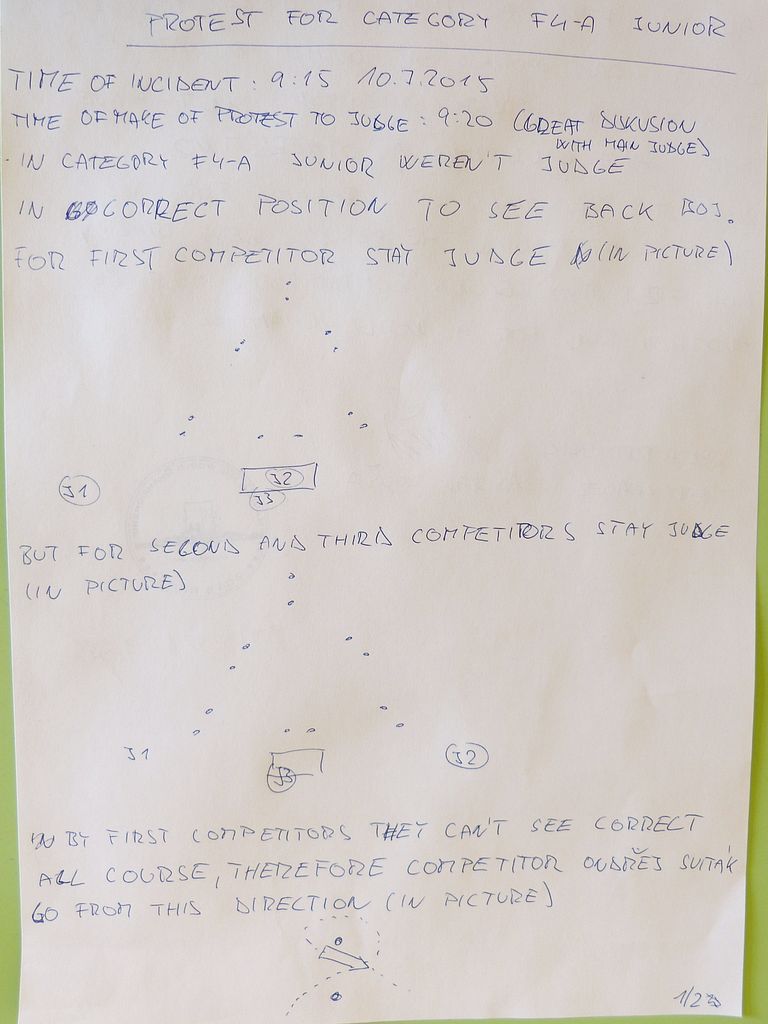 PROTEST FOR CATEGORY F4-A JUNIOR
TIME OF INCIDENT : 9:15 10.7.2015
TIME OF MAKE OF PROTEST TO JUDGE : 9:20 (GREAT DISKUSION
WITH MAIN JUDGE)
IN CATEGORY F4-A JUNIOR WEREN'T JUDGE
IN CORRECT POSITION TO SEE BACK BOJ.
FOR FIRST COMPETITOR STAY JUDGE (IN PICTURE)
J1
J2
J3
BUT FOR SECOND AND THIRD COMPETITORS STAY JUDGE
(IN PICTURE)
J1
J2
J3
BY FIRST COMPETITORS THEY CAN'T SEE CORRECT
ALL COURSE, THEREFORE COMPETITOR ONDŘEJ SVITÁK
GO FROM THIS DIRECTION (IN PICTURE)
1/2